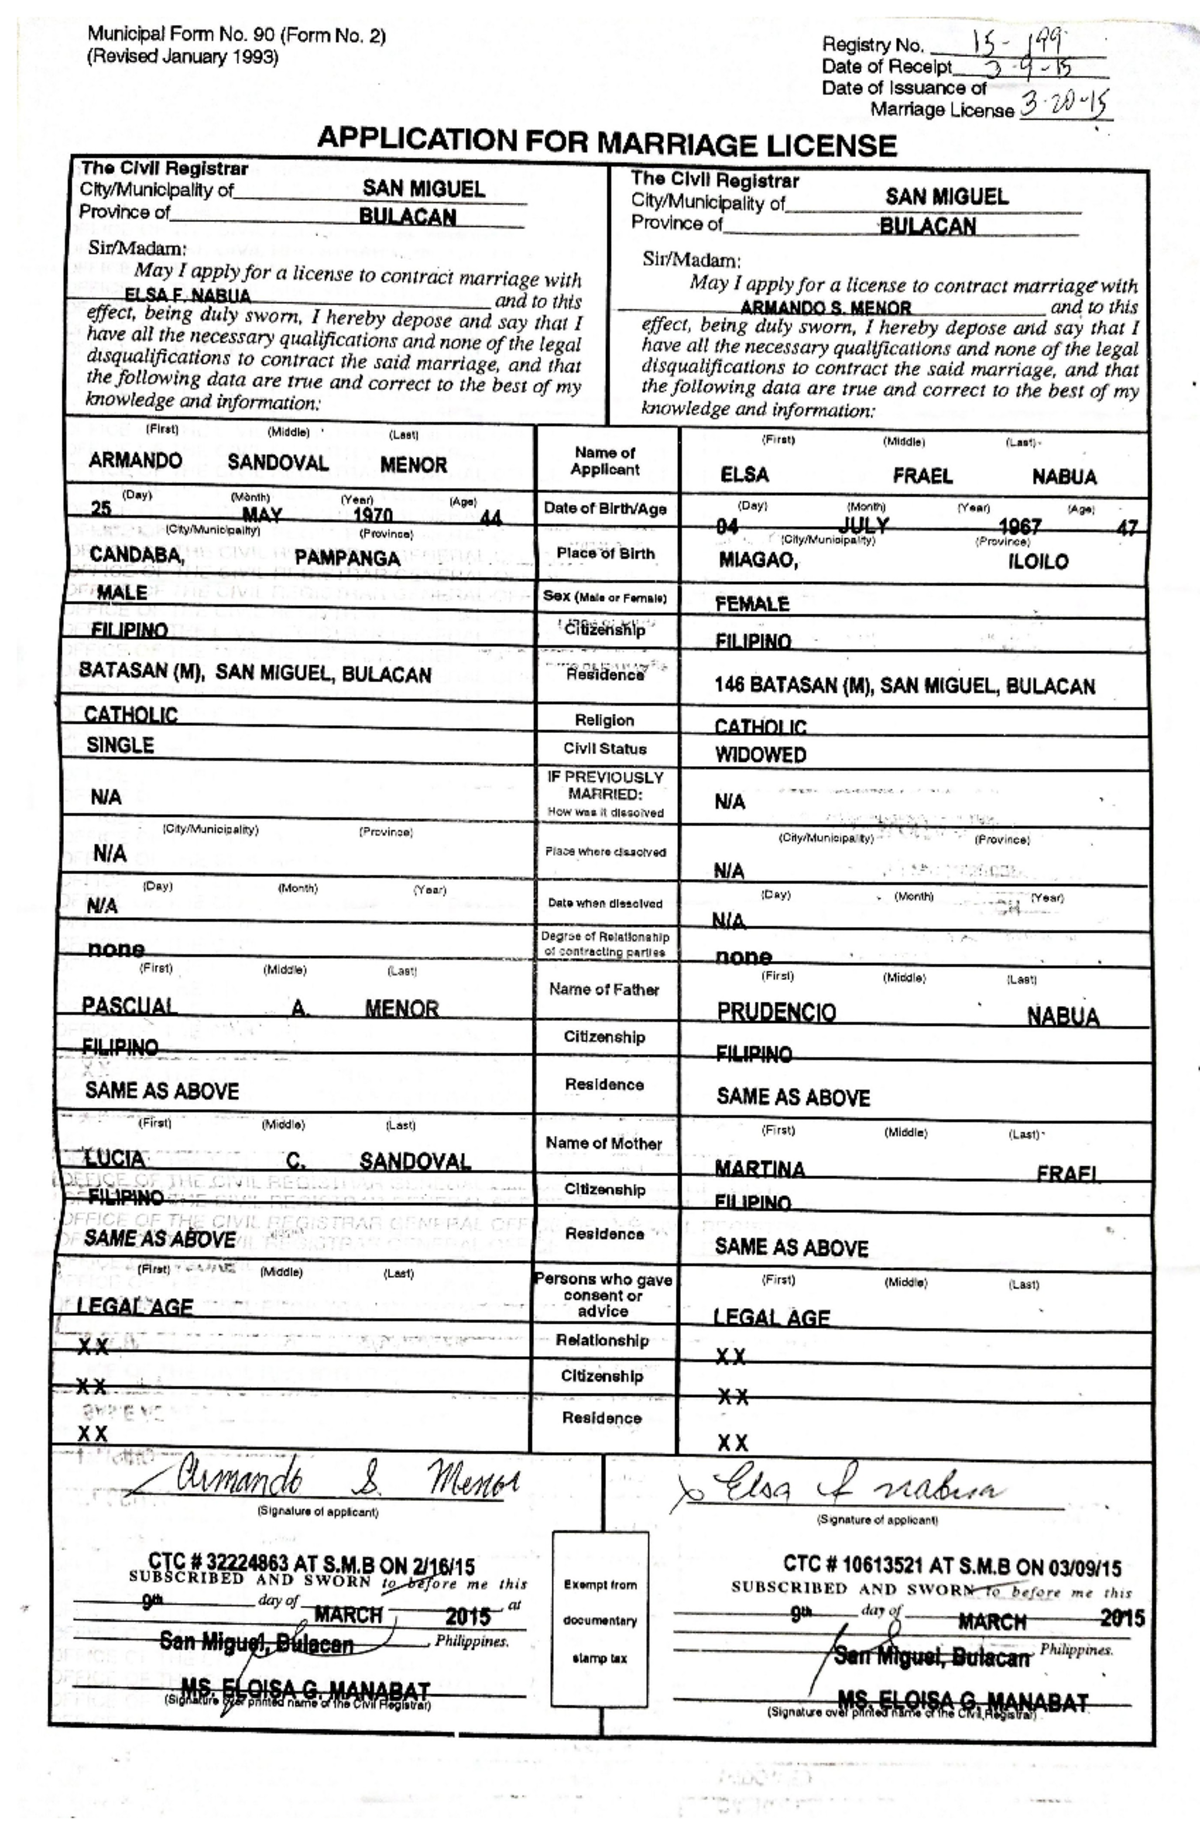 Municipal Form No. 90 (Form No. 2)
(Revised January 1993)
Registry No. 15-199
Date of Receipt 3-9-15
Date of Issuance of
Marriage License 3-20-15
APPLICATION FOR MARRIAGE LICENSE
The Civil Registrar
City/Municipality of SAN MIGUEL
Province of BULACAN
Sir/Madam:
May I apply for a license to contract marriage with
ELSA F. NABUA and to this
effect, being duly sworn, I hereby depose and say that I
have all the necessary qualifications and none of the legal
disqualifications to contract the said marriage, and that
the following data are true and correct to the best of my
knowledge and information:
The Civil Registrar
City/Municipality of SAN MIGUEL
Province of BULACAN
Sir/Madam:
May I apply for a license to contract marriage with
ARMANDO S. MENOR and to this
effect, being duly sworn, I hereby depose and say that I
have all the necessary qualifications and none of the legal
disqualifications to contract the said marriage, and that
the following data are true and correct to the best of my
knowledge and information:
(First) (Middle) (Last) (First) (Middle) (Last)
ARMANDO SANDOVAL MENOR Name of Applicant ELSA FRAEL NABUA
(Day) (Month) (Year) (Age) (Day) (Month) (Year) (Age)
25 MAY 1970 44 Date of Birth/Age 04 JULY 1967 47
(City/Municipality) (Province) (City/Municipality) (Province)
CANDABA, PAMPANGA Place of Birth MIAGAO, ILOILO
MALE Sex (Male or Female) FEMALE
FILIPINO Citizenship FILIPINO
BATASAN (M), SAN MIGUEL, BULACAN Residence 146 BATASAN (M), SAN MIGUEL, BULACAN
CATHOLIC Religion CATHOLIC
SINGLE Civil Status WIDOWED
IF PREVIOUSLY
MARRIED:
N/A How was it dissolved N/A
(City/Municipality) (Province) (City/Municipality) (Province)
N/A Place where dissolved N/A
(Day) (Month) (Year) (Day) (Month) (Year)
N/A Date when dissolved N/A
none Degree of Relationship of contracting parties none
(First) (Middle) (Last) (First) (Middle) (Last)
PASCUAL A. MENOR Name of Father PRUDENCIO NABUA
FILIPINO Citizenship FILIPINO
SAME AS ABOVE Residence SAME AS ABOVE
(First) (Middle) (Last) (First) (Middle) (Last)
LUCIA C. SANDOVAL Name of Mother MARTINA FRAEL
FILIPINO Citizenship FILIPINO
SAME AS ABOVE Residence SAME AS ABOVE
(First) (Middle) (Last) (First) (Middle) (Last)
LEGAL AGE Persons who gave consent or advice LEGAL AGE
XX Relationship XX
XX Citizenship XX
XX Residence XX
Armando S. Menor
(Signature of applicant)
CTC # 32224863 AT S.M.B ON 2/16/15
SUBSCRIBED AND SWORN to before me this
9th day of MARCH 2015 at
San Miguel, Bulacan Philippines.
MS. ELOISA G. MANABAT
(Signature over printed name of the Civil Registrar)
Exempt from
documentary
stamp tax
Elsa F Nabua
(Signature of applicant)
CTC # 10613521 AT S.M.B ON 03/09/15
SUBSCRIBED AND SWORN to before me this
9th day of MARCH 2015
San Miguel, Bulacan Philippines.
MS. ELOISA G. MANABAT
(Signature over printed name of the Civil Registrar)